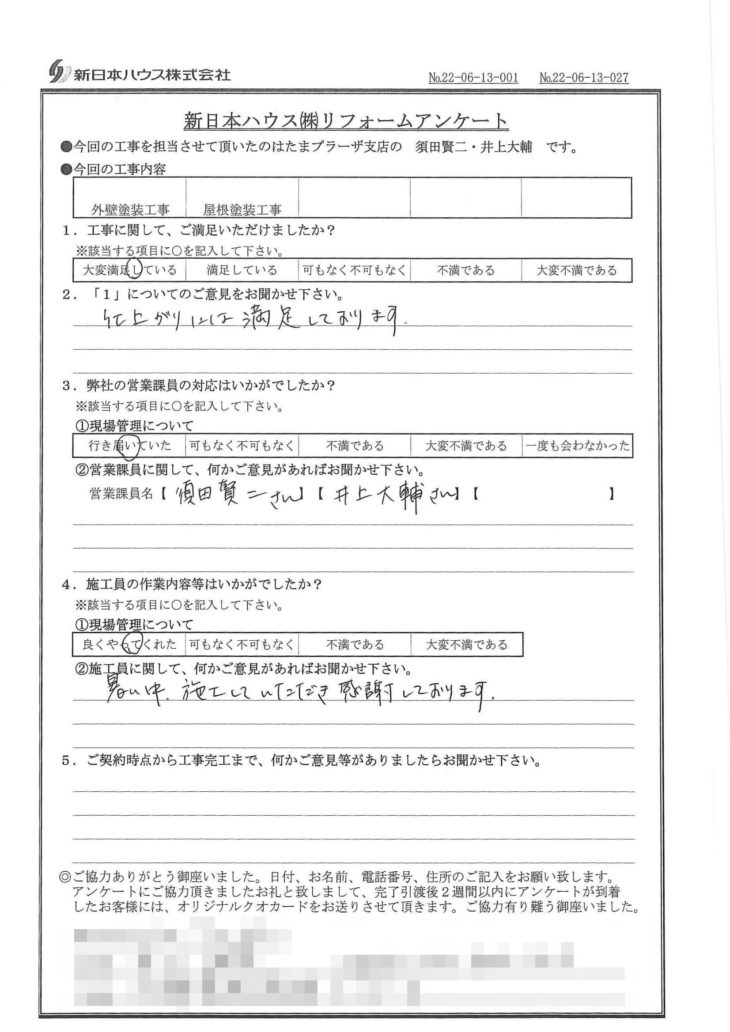 新日本ハウス株式会社
№22-06-13-001 №22-06-13-027
新日本ハウス㈱リフォームアンケート
●今回の工事を担当させて頂いたのはたまプラーザ支店の 須田賢二・井上大輔 です。
●今回の工事内容
外壁塗装工事 屋根塗装工事
1．工事に関して、ご満足いただけましたか？
※該当する項目に○を記入して下さい。
大変満足している 満足している 可もなく不可もなく 不満である 大変不満である
2．「1」についてのご意見をお聞かせ下さい。
仕上がりには満足しております.
3．弊社の営業課員の対応はいかがでしたか？
※該当する項目に○を記入して下さい。
①現場管理について
行き届いていた 可もなく不可もなく 不満である 大変不満である 一度も会わなかった
②営業課員に関して、何かご意見があればお聞かせ下さい。
営業課員名【 須田賢二さん】【 井上大輔さん】【 】
4．施工員の作業内容等はいかがでしたか？
※該当する項目に○を記入して下さい。
①現場管理について
良くやってくれた 可もなく不可もなく 不満である 大変不満である
②施工員に関して、何かご意見があればお聞かせ下さい。
暑い中、施工していただき感謝しております.
5．ご契約時点から工事完工まで、何かご意見等がありましたらお聞かせ下さい。
◎ご協力ありがとう御座いました。日付、お名前、電話番号、住所のご記入をお願い致します。
アンケートにご協力頂きましたお礼と致しまして、完了引渡後２週間以内にアンケートが到着
したお客様には、オリジナルクオカードをお送りさせて頂きます。ご協力有り難う御座いました。